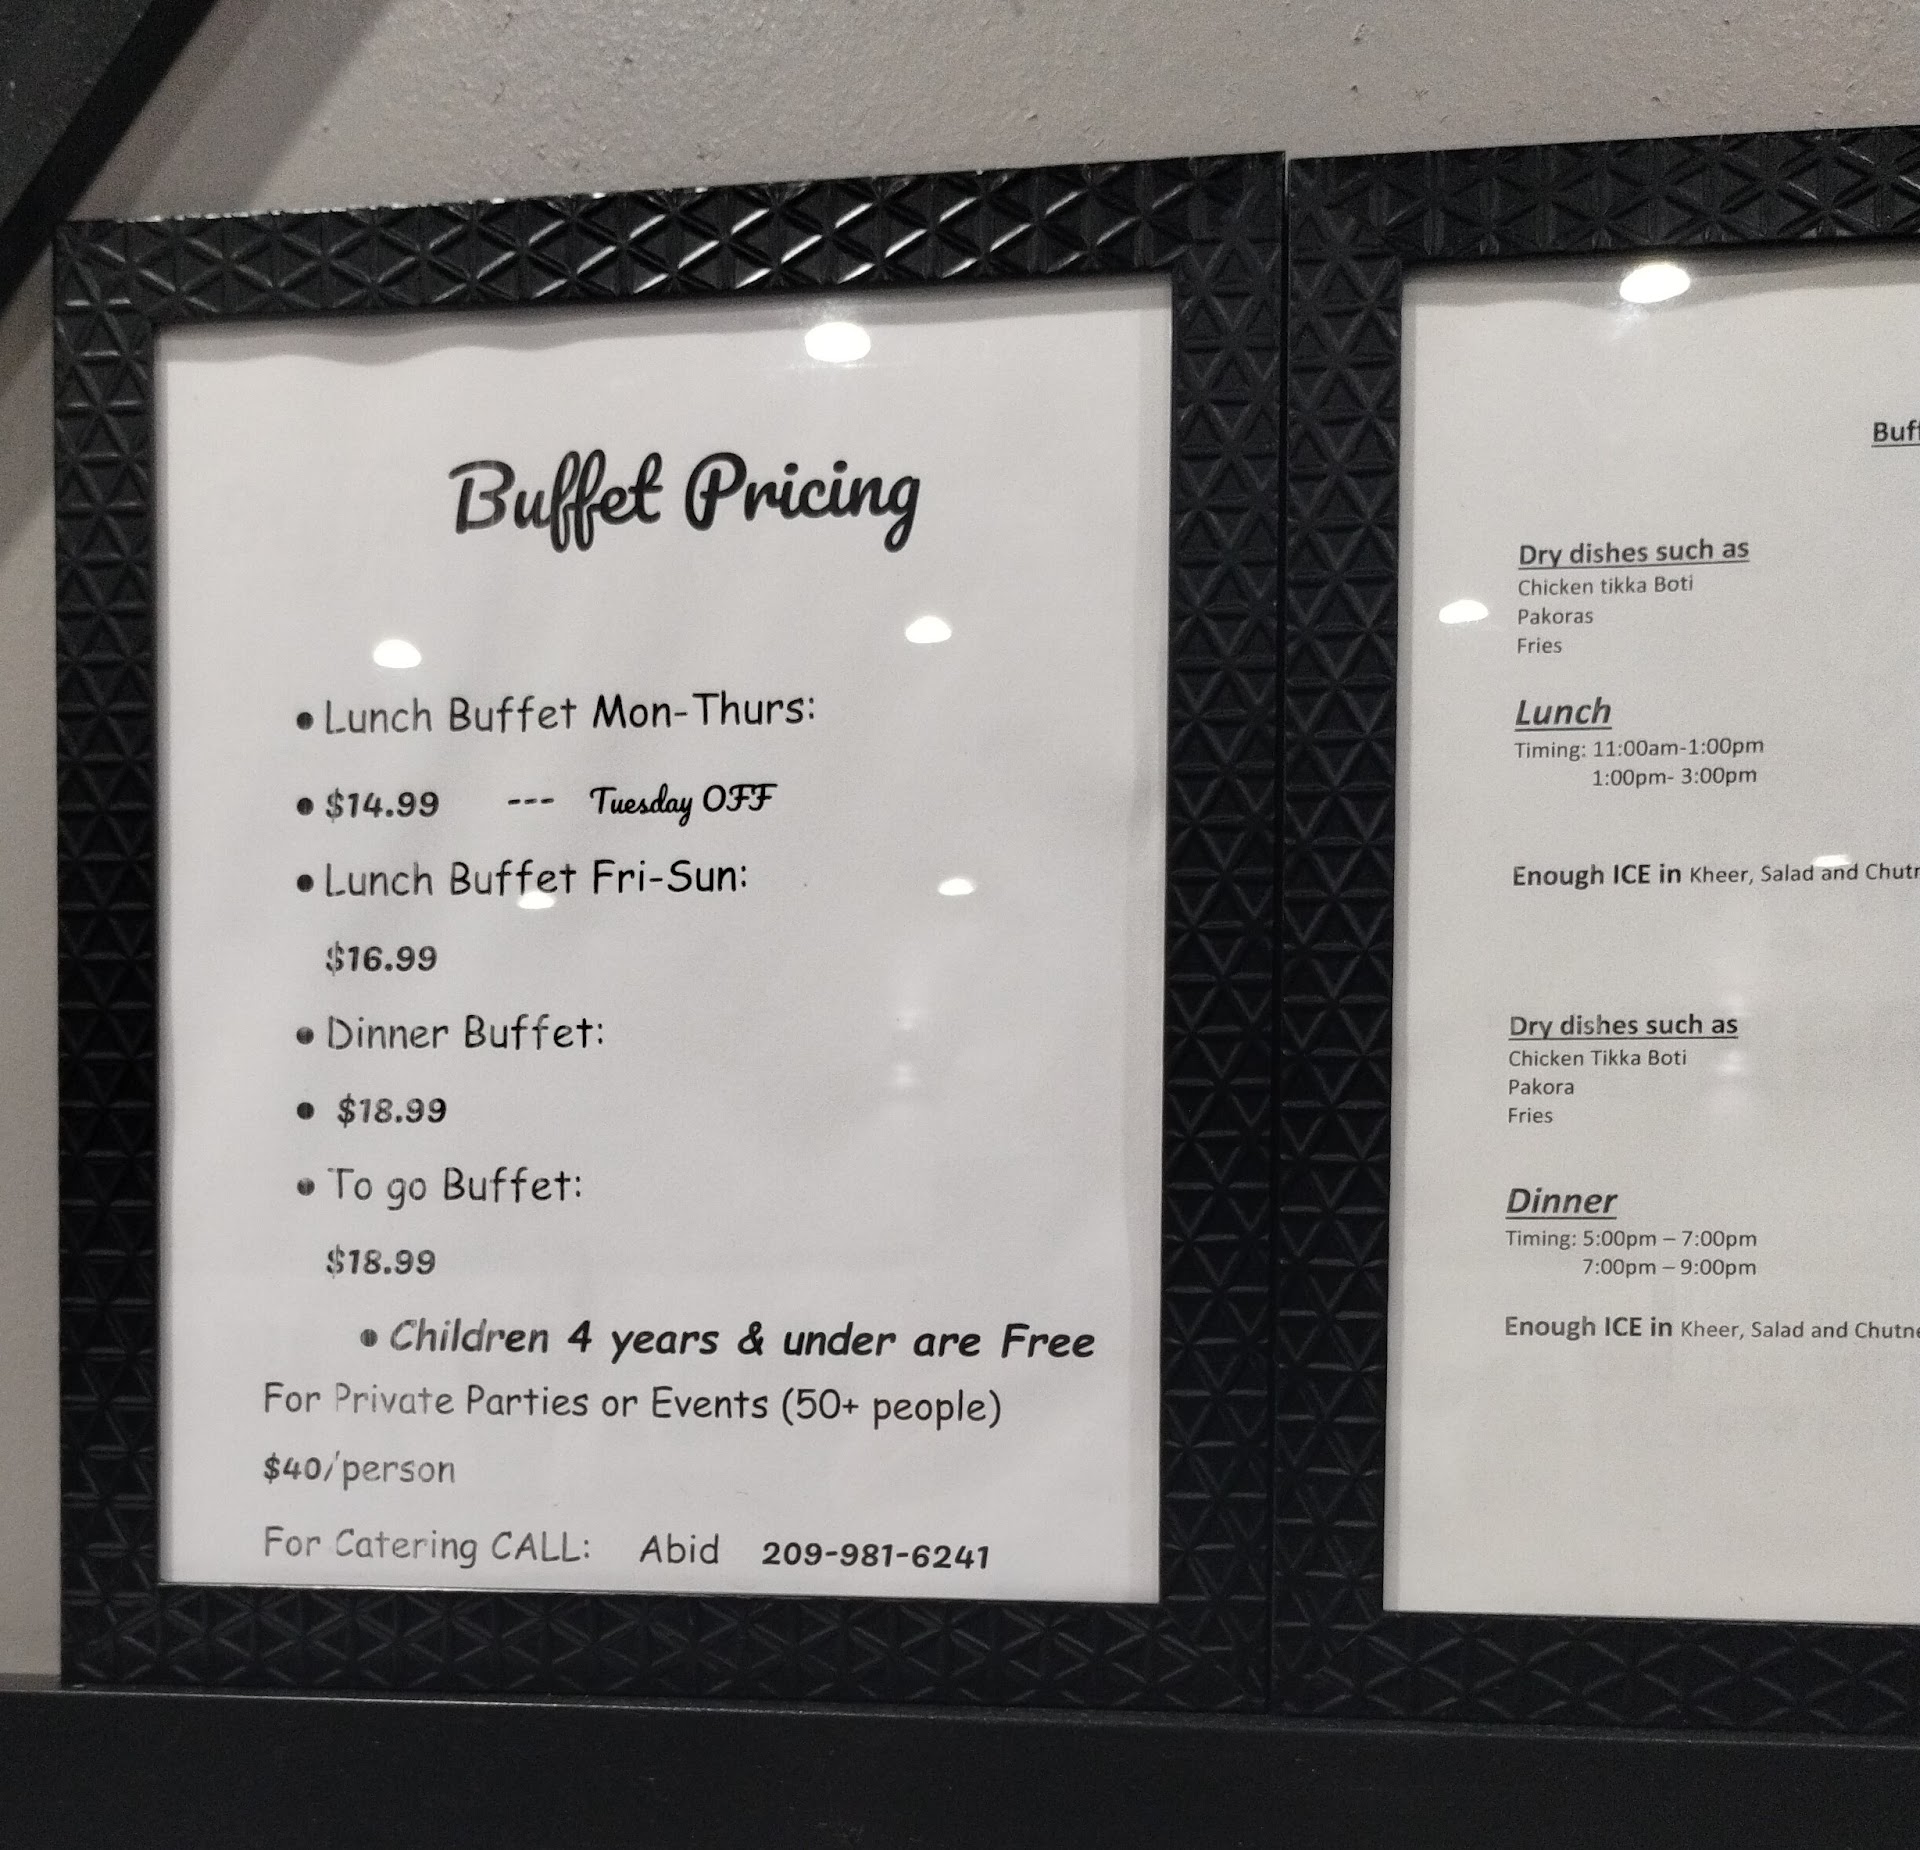 Buffet Pricing
• Lunch Buffet Mon-Thurs:
• $14.99 --- Tuesday OFF
• Lunch Buffet Fri-Sun:
$16.99
• Dinner Buffet:
• $18.99
• To go Buffet:
$18.99
• Children 4 years & under are Free
For Private Parties or Events (50+ people)
$40/person
For Catering CALL: Abid 209-981-6241
Dry dishes such as
Chicken tikka Boti
Pakoras
Fries
Lunch
Timing: 11:00am-1:00pm
1:00pm- 3:00pm
Enough ICE in Kheer, Salad and
Dry dishes such as
Chicken Tikka Boti
Pakora
Fries
Dinner
Timing: 5:00pm – 7:00pm
7:00pm – 9:00pm
Enough ICE in Kheer, Salad and